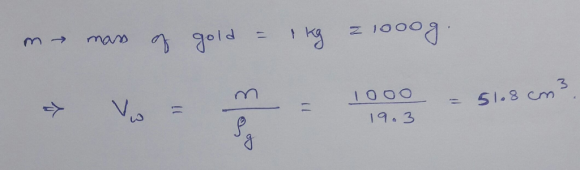 m → mass of gold = 1 kg = 1000g.
⇒ Vω = m/ρg = 1000/19.3 = 51.8 cm³.